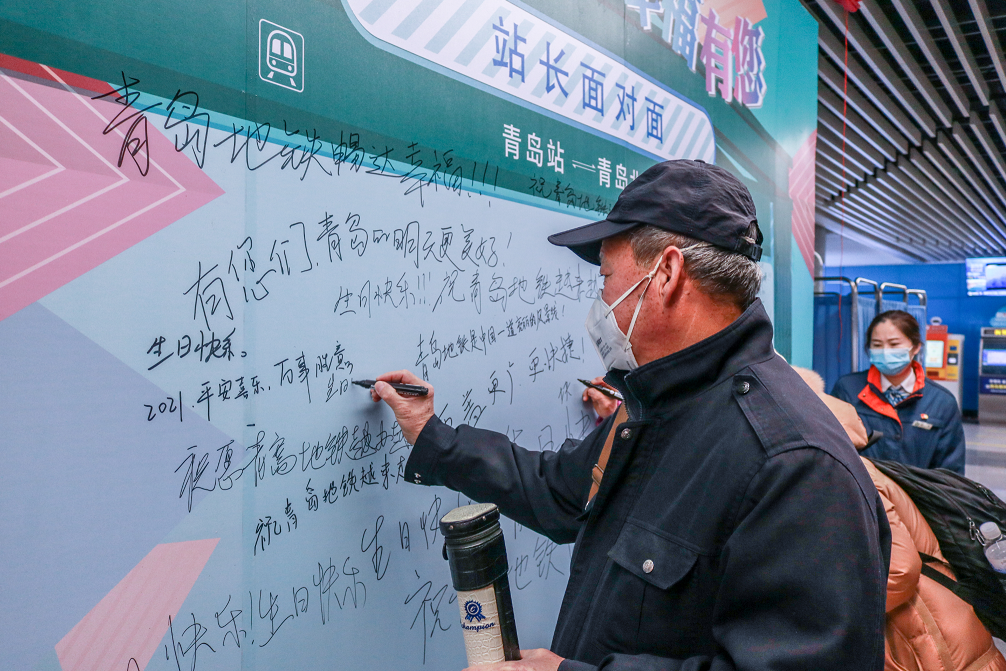 幸福有您
站长面对面
青岛站⇌青岛北
祝青岛地铁
青岛地铁畅达幸福!!!
有您们,青岛的明天更美好!
生日快乐!!!祝青岛地铁越来越
生日快乐。
青岛地铁是中国一道美丽的风景线!
2021.平安喜乐,万事顺意
生日
更 更快捷!
祝愿青岛地铁越办越
祝青岛地铁越来
生日快
快乐!生日快乐
祝 地铁
Champion